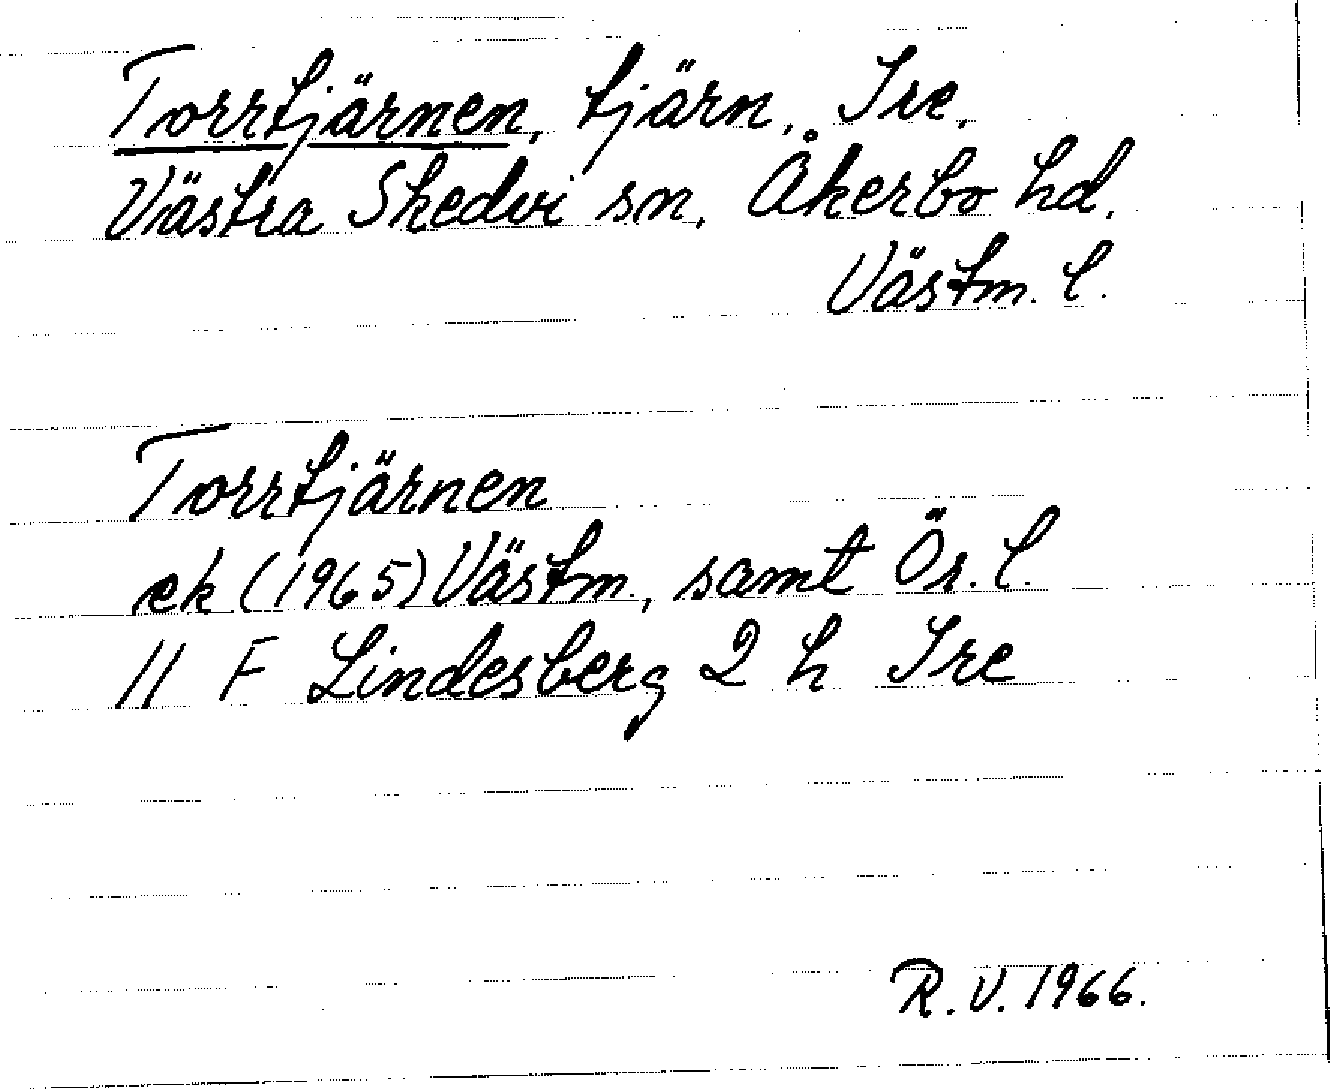 Torrtjärnen, tjärn, Ire,
Västra Skedvi sn, Åkerbo hd.
Västm. l.
Torrtjärnen
ek (1965) Västm., samt Ör. l.
11 F Lindesberg 2 h Ire
R.V. 1966.